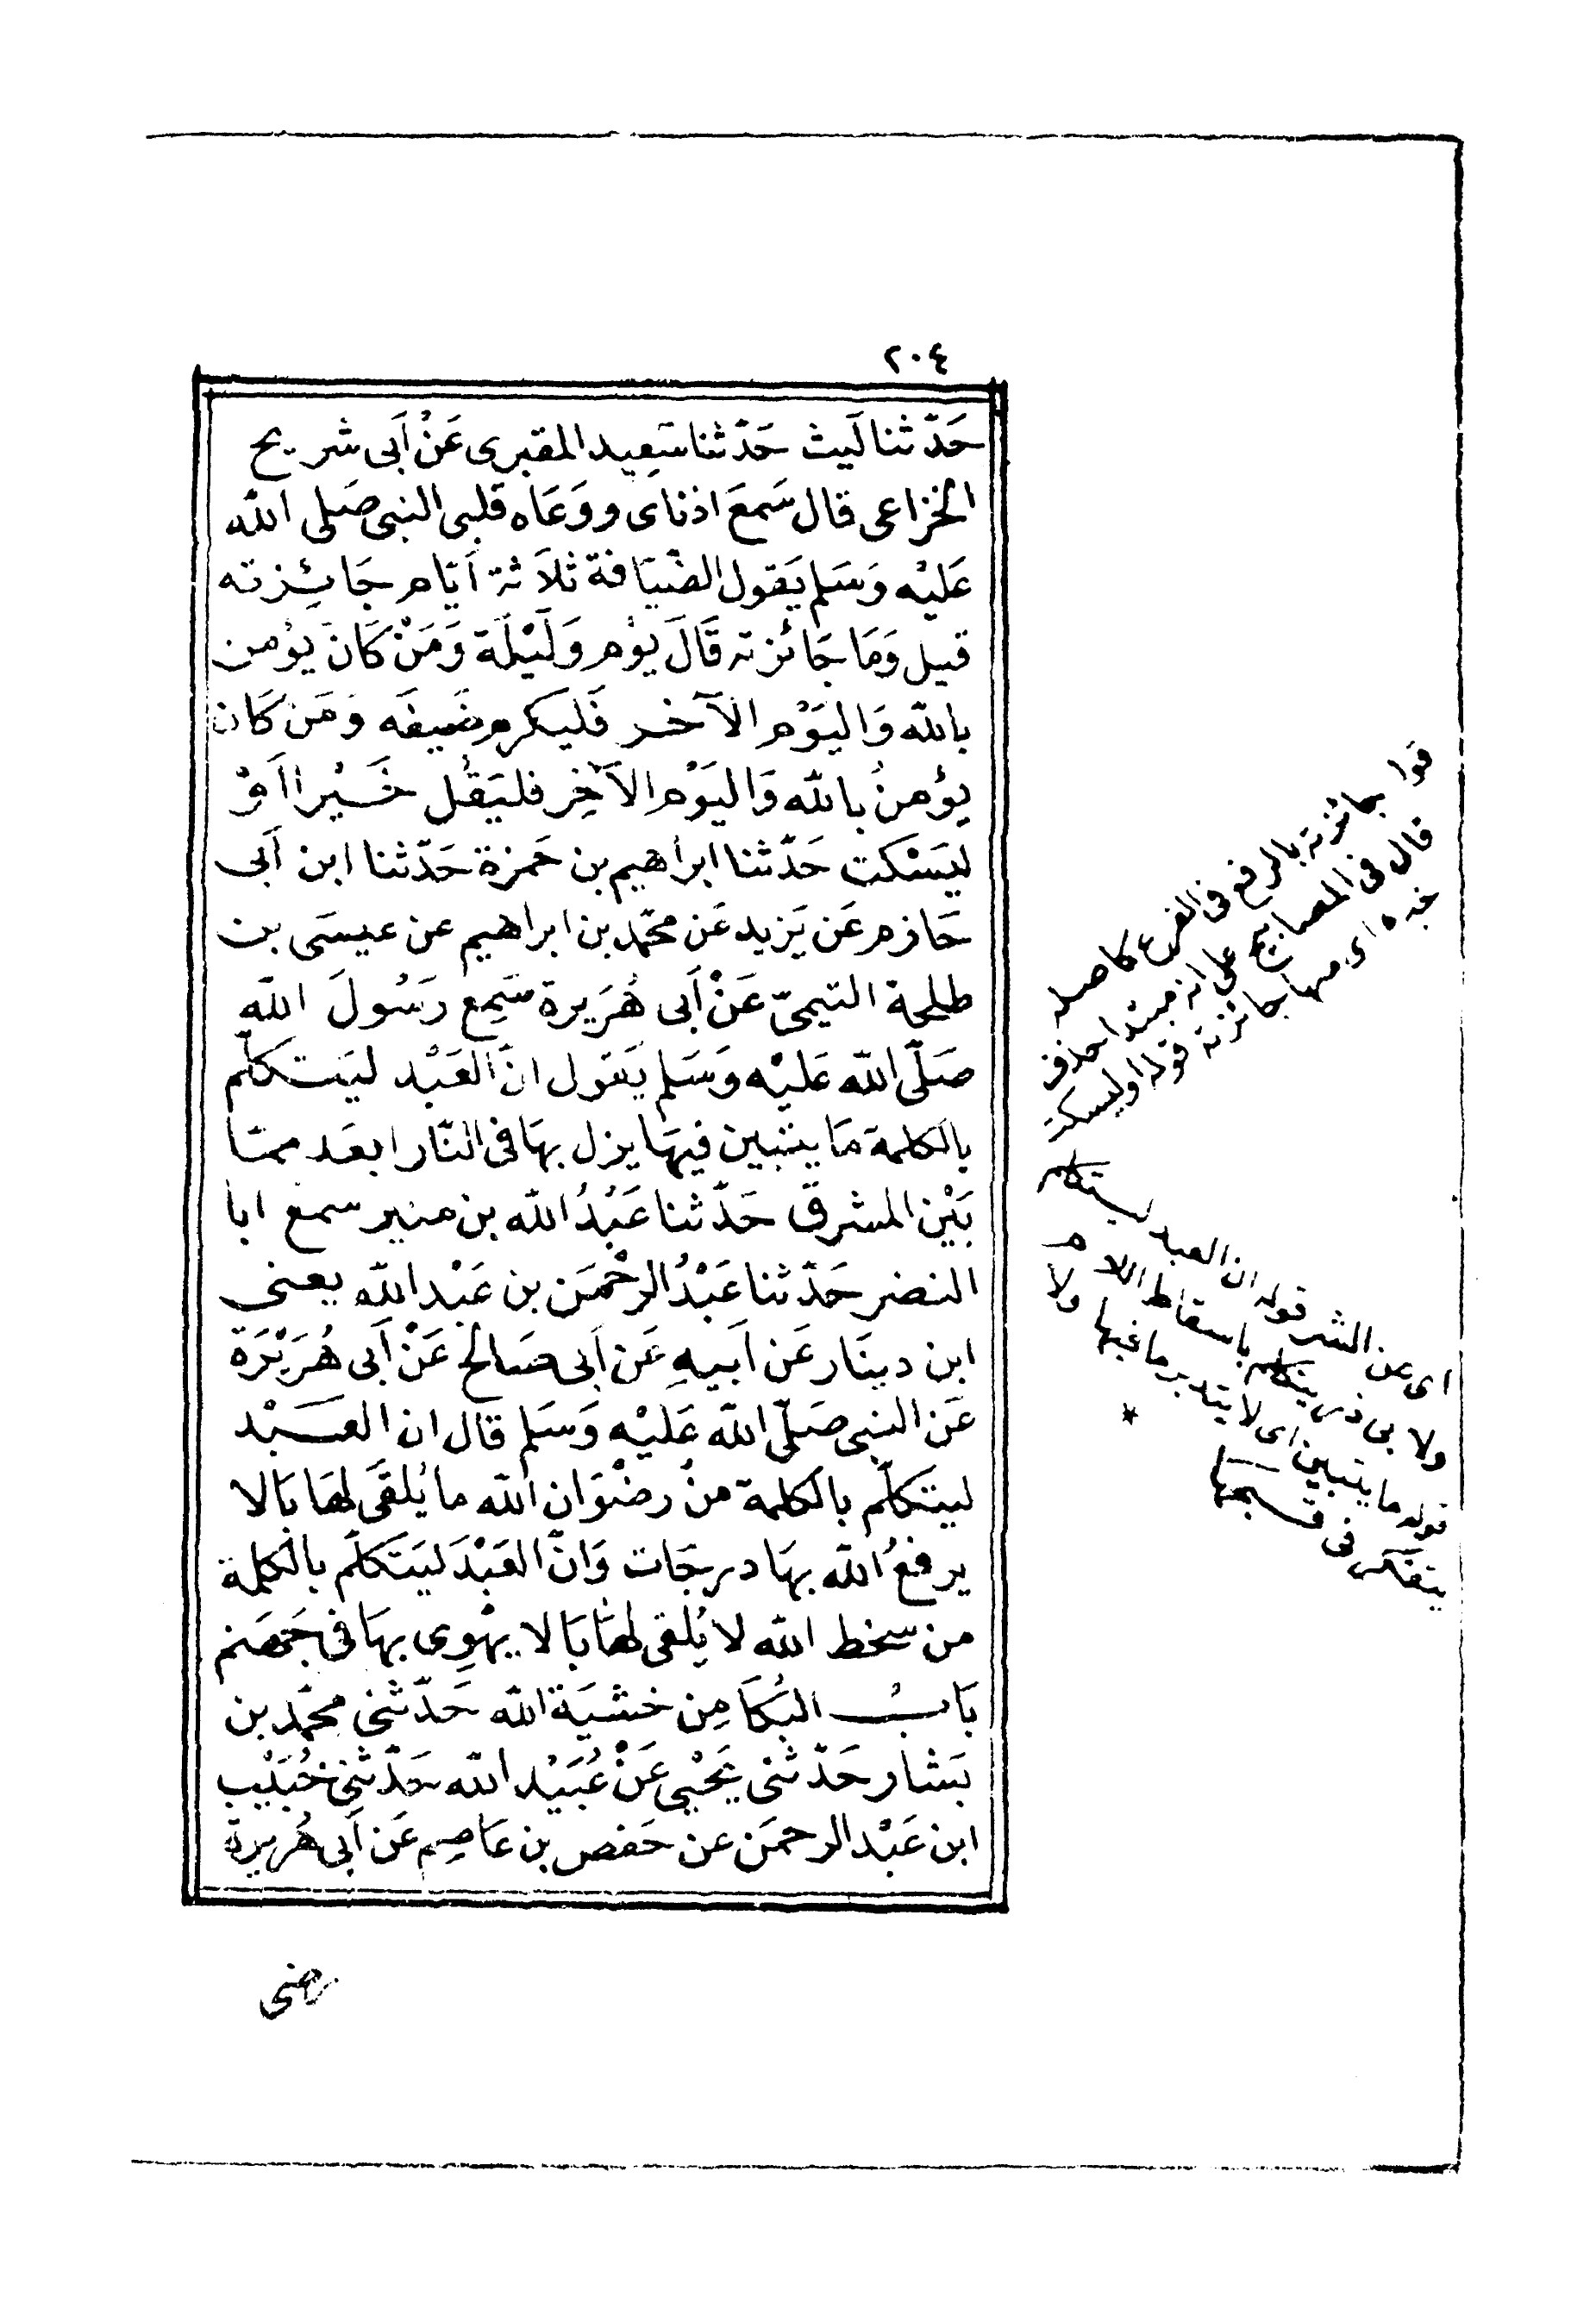 ٢٠٤
حَدّثنا لَيث حَدّثنا سَعِيد المقبرى عَنْ أَبى شريح
الخزاعى قال سَمعَ اذناى ووَعَاه قلبى النبى صَلى الله
عَليْه وَسَلم يَقول الضّيَافة ثلاَثة اَيّام جَائِزته
قيل وَمَا جَائزته قَالَ يَوْم وَلَيْلَة وَمَنْ كَانَ يؤمن
بالله وَاليَوْم الآخر فَليَكرم ضَيفَه وَمَن كَان
يؤمنُ بالله وَاليَوْم الآخِر فليَقُل خَيْرا اَوْ
ليَسْكت حَدّثنا ابراهيم بن حَمزة حَدّثنا ابن اَبى
حَازم عَن يَزيد عَن محمّد بن ابراهيم عن عيسَى بن
طلحة التيمىّ عَنْ أَبى هُرَيرة سَمِع رَسُولَ الله
صَلّى الله عَليْه وَسَلم يَقول انّ العَبْد ليَتكلّم
بالكلمة مَا يتبين فيهَا يزل بهَا فى النّار ابعَد ممّا
بَيْن المشرق حَدّثنا عَبْدُ الله بن منير سمع ابا
النضر حَدّثنا عَبْدُ الرحْمَن بن عَبْد الله يعنى
ابن دينَار عَن اَبيهِ عَن اَبى صَالح عَنْ اَبى هُرَيْرَة
عَن النبى صَلّى الله عَليْه وَسَلم قال ان العَبْد
ليتكَلّم بالكلمة منْ رضْوَان الله ما يُلقَى لهَا بَالا
يرفعُ الله بهَا درجَات وَانّ العَبْدَ ليَتَكلّم بالكلمة
من سخط الله لا يُلقى لهَا بَالا يهْوِى بهَا فى جَهَنم
بَابُ البُكَا مِن خشيَة الله حَدّثنى محمّد بن
بَشار حَدّثنى يَحْيى عَنْ عُبَيْد الله حَدّثنى خُبَيْب
ابن عَبْد الرحمَن عن حَفص بن عَاصِم عَن اَبى هُريرة
جائزته بالرفع فى الفرع كاصله
قال فى المصابيح على انه مبتدا حذف
خبره اى منها جائزته قوله او ليسكت
اى عن الشر قوله ان العبد ليتكلم
ولابى ذر يتكلم باسقاط اللام
قوله ما يتبين اى لا يتدبر ما فيها ولا
يتفكر فى قبحها
رضى